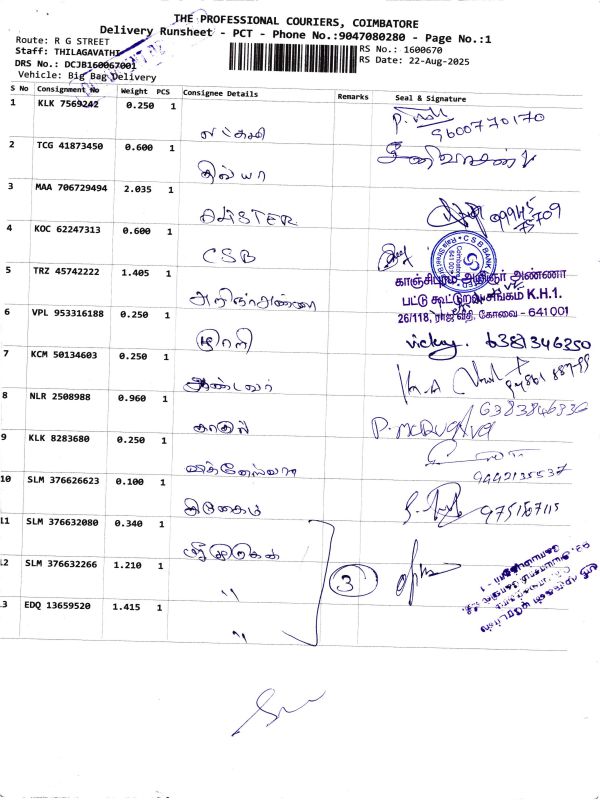 THE PROFESSIONAL COURIERS, COIMBATORE
Delivery Runsheet - PCT - Phone No.:9047080280 - Page No.:1
Route: R G STREET
Staff: THILAGAVATHI
DRS No.: DCJB160067001
Vehicle: Big Bag Delivery
RS No.: 1600670
RS Date: 22-Aug-2025
S No Consignment No Weight PCS Consignee Details Remarks Seal & Signature
1 KLK 7569242 0.250 1
9600770170
2 TCG 41873450 0.600 1 திவ்யா
சீனிவாசன்
3 MAA 706729494 2.035 1
99945 75709
4 KOC 62247313 0.600 1 CSB
CSB BANK
Coimbatore
641 001
5 TRZ 45742222 1.405 1 அறிஞர் அண்ணா
காஞ்சிபுரம் அறிஞர் அண்ணா
பட்டு கூட்டுறவு சங்கம் K.H.1.
26/118, ராஜ வீதி, கோவை - 641 001
6 VPL 953316188 0.250 1
vicky. 6381346350
7 KCM 50134603 0.250 1 ஆண்டவர்
8 NLR 2508988 0.960 1
6383846336
9 KLK 8283680 0.250 1 விக்னேஸ்வரா
9442135537
10 SLM 376626623 0.100 1
975167115
11 SLM 376632080 0.340 1 ஸ்ரீ முருகன்
12 SLM 376632266 1.210 1 "
3
13 EDQ 13659520 1.415 1 "